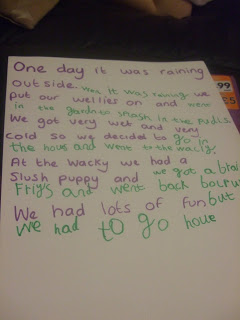 One day it was raining
outside. was it was raining we
put our wellies on and went
in the garden smash in the pudls
We got very wet and very
cold so we decided to go in
the houe and went to the wacky.
At the Wacky we had a
Slush puppy and we got a
Friys and went back
We had lots of fun but
we had to go houe
99